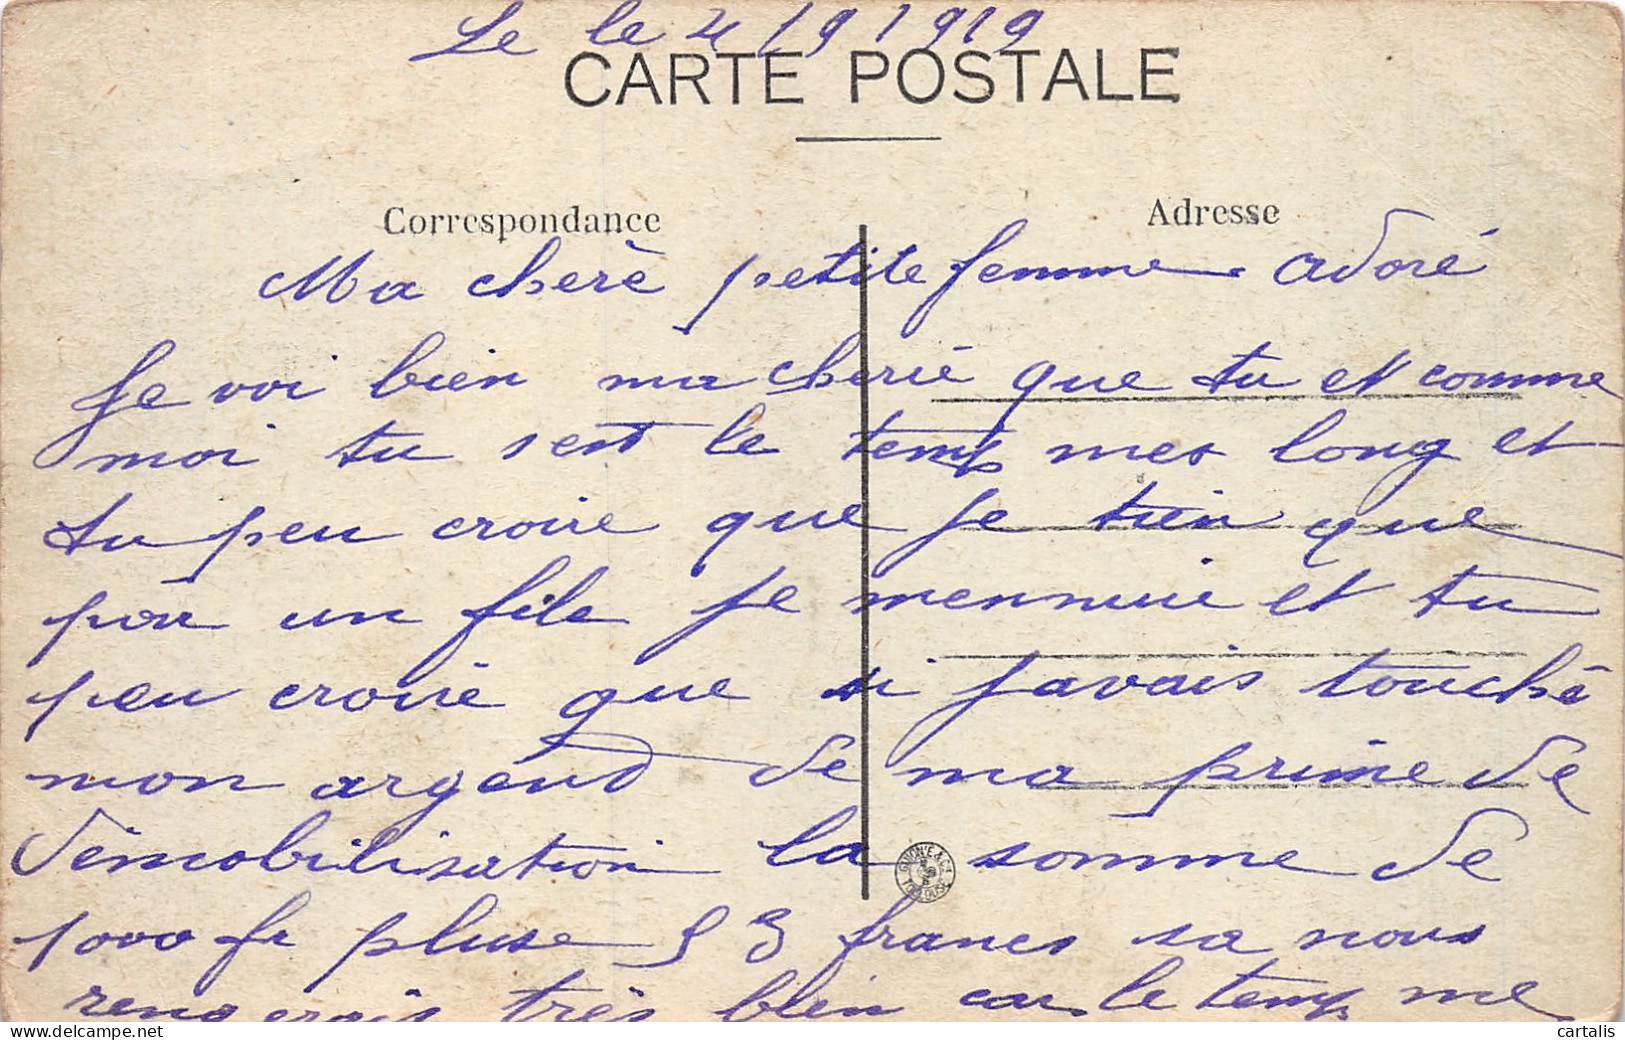 Le le 4/9 1919
CARTE POSTALE
Correspondance
Adresse
Ma cherè petite femme adoré
Je voi bien ma cherie que tu et comme
moi tu sent le temps mes long et
tu peu croire que je tien que
par un file je mennuie et tu
peu croire que si javais touché
mon argend de ma prime de
démobilisation la somme de
1000 fr pluse 53 francs sa nous
rengerais très bien car le temps me
TOULOUSE
cartalis